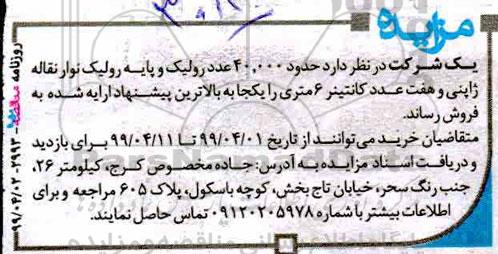 مزایده
یک شرکت در نظر دارد حدود ۴۰,۰۰۰ عدد رولیک و پایه رولیک نوار نقاله
ژاپنی و هفت عدد کانتینر ۶ متری را یکجا به بالاترین پیشنهاد ارایه شده به
فروش رساند.
متقاضیان خرید می‌توانند از تاریخ ۹۹/۰۴/۰۱ تا ۹۹/۰۴/۱۱ برای بازدید
و دریافت اسناد مزایده به آدرس: جاده مخصوص کرج، کیلومتر ۲۶،
جنب رنگ سحر، خیابان تاج بخش، کوچه باسکول، پلاک ۶۰۵ مراجعه و برای
اطلاعات بیشتر با شماره ۰۹۱۲۰۲۰۵۹۷۸ تماس حاصل نمایند.
روزنامه مناقصه مزایده - ۲۹۹۳ - ۹۹/۰۴/۰۲